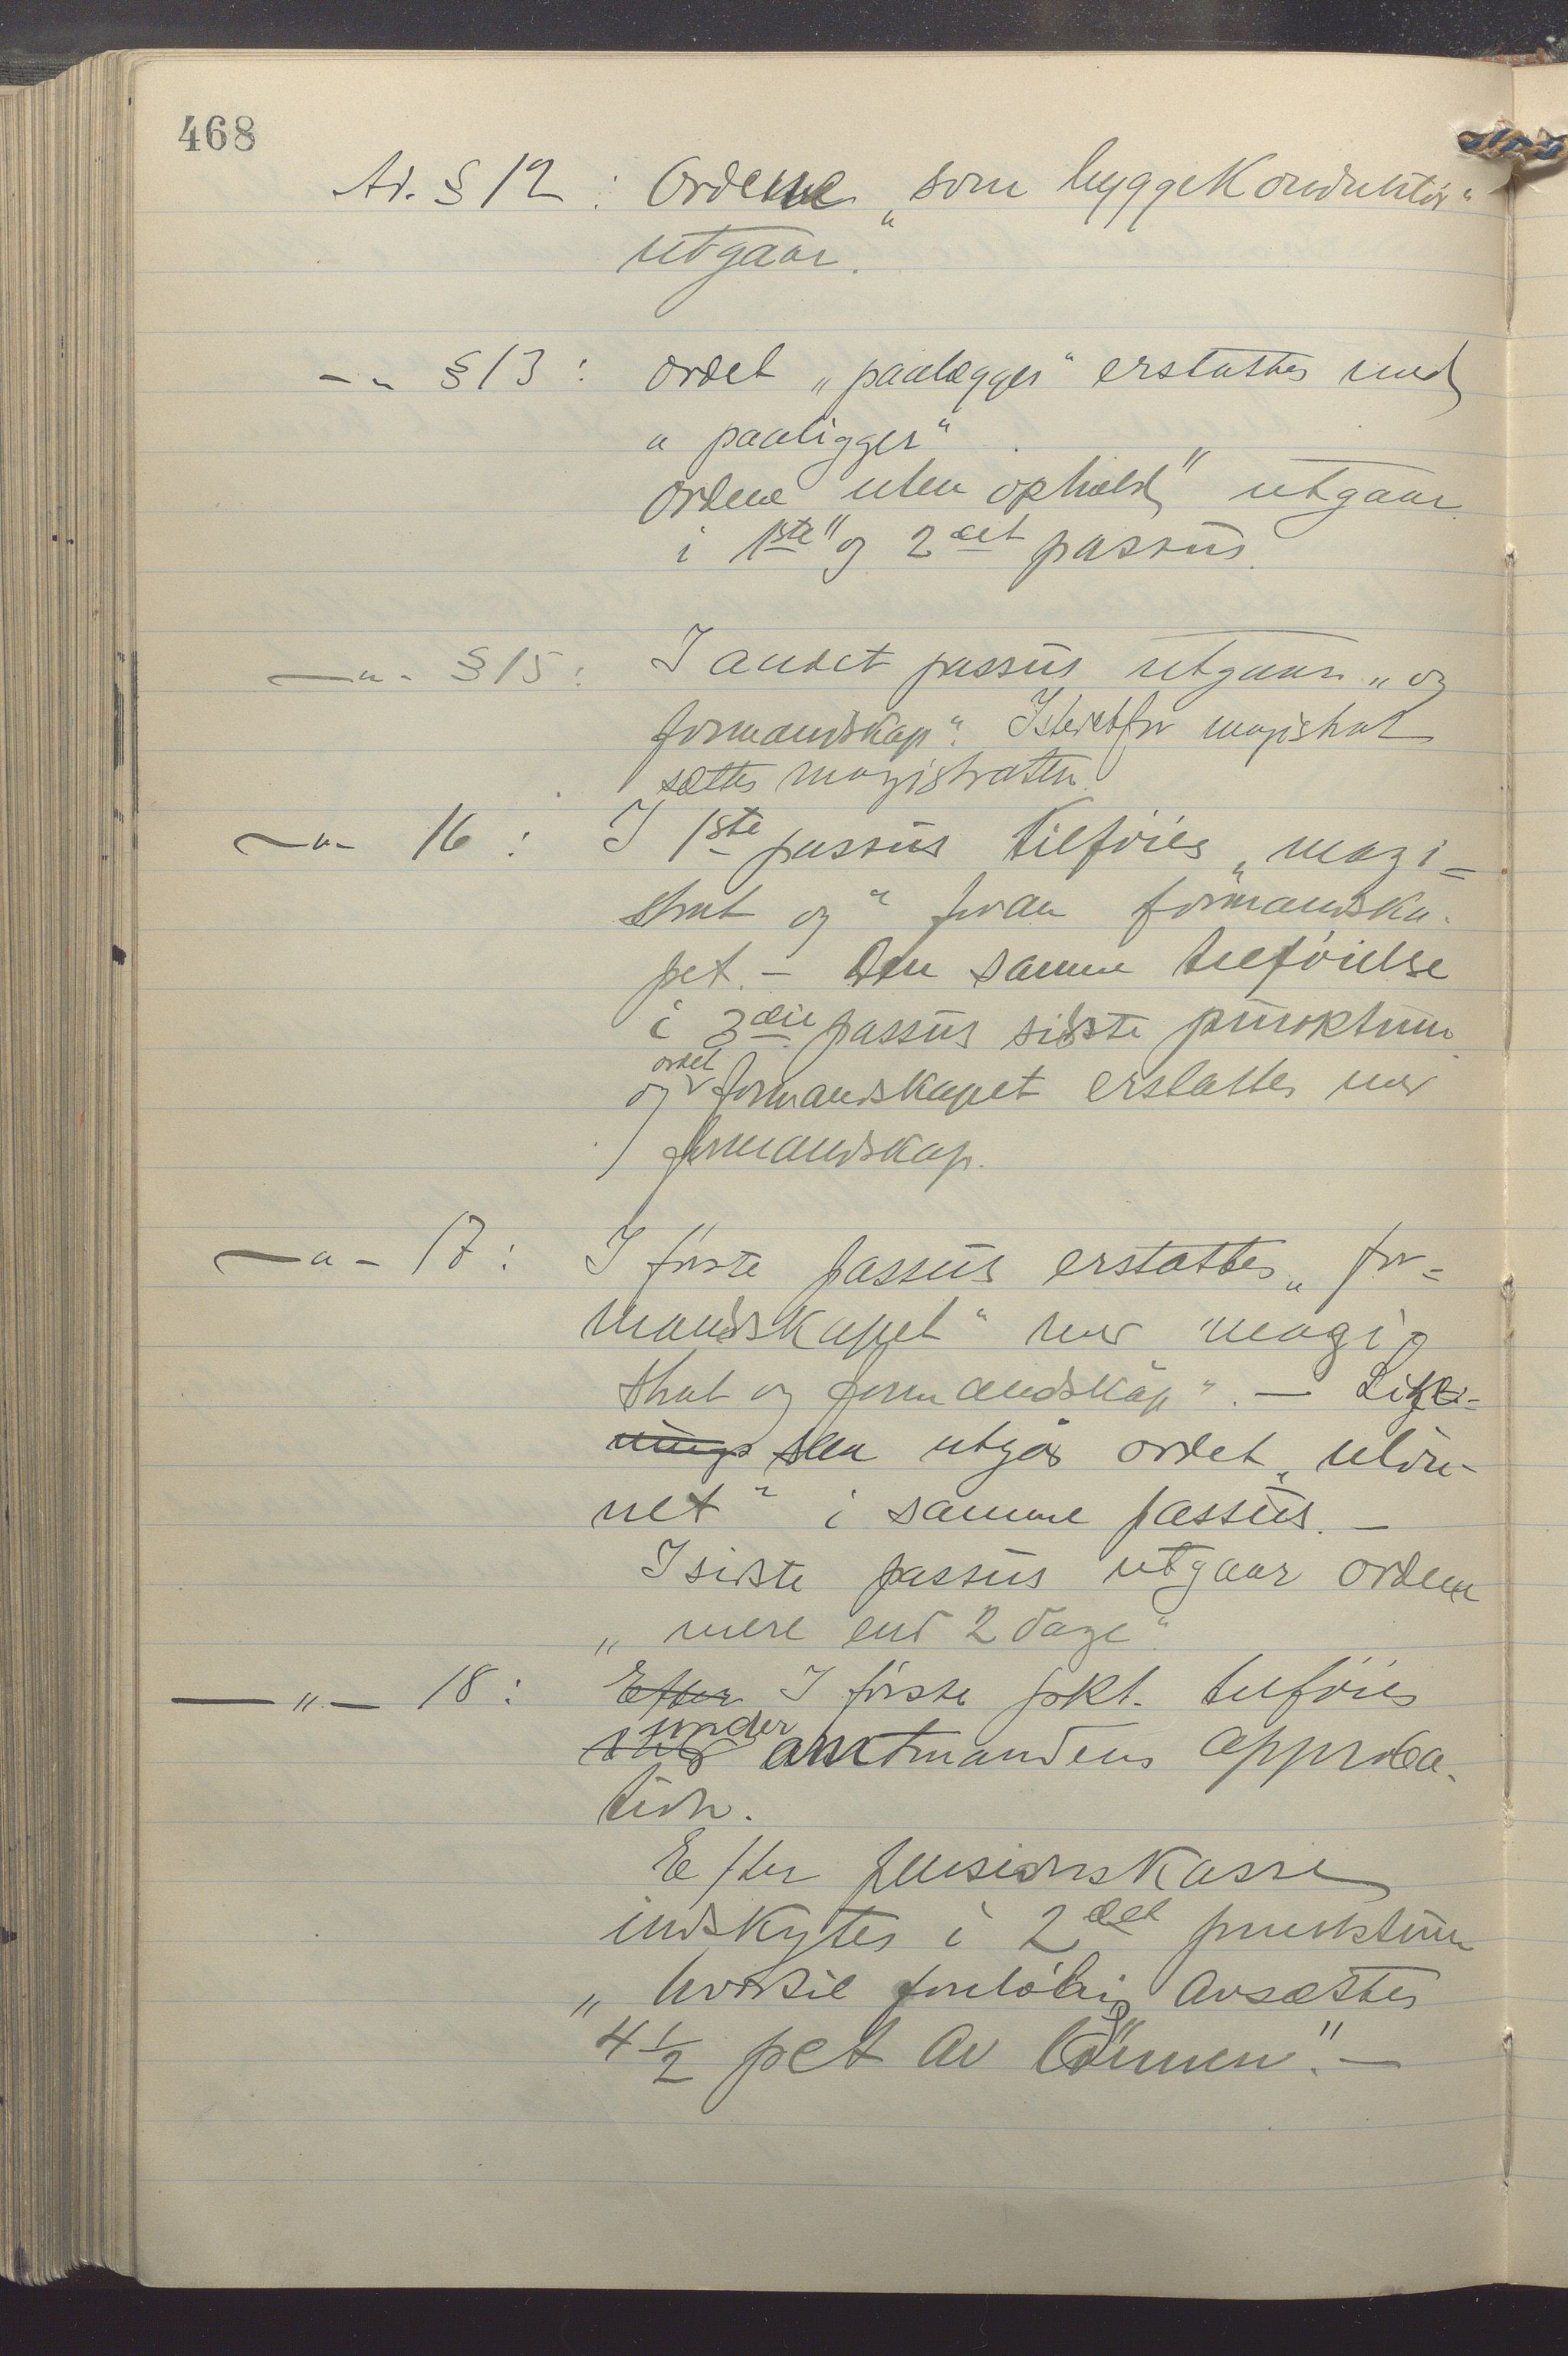 468
Ad. § 12 : Ordene „som byggekonduktör“
utgaar.
-„- § 13 : Ordet „paalægges“ erstattes med
„paaligger“.
Ordene "uten ophold" utgaar
i 1ste og 2det passus.
-„- § 15 : I andet passus utgaar „og
formandskap“. Istedetfor magistrat
sættes magistraten.
-„- 16 : I 1ste passus tilföies „magi-
strat og“ foran formandska-
pet. - Den samme tilföielse
i 3die passus sidste punktum
og ordet formandskapet erstattes med
formandskap.
-„- 17 : I förste passus erstattes „for-
mandskapet“ med "magi-
strat og formandskap“. - Like-
saa utgaar ordet „ulön-
net“ i samme passus. -
I sidste passus utgaar ordene
„mere end 2 dage“.
-„- 18 : Efter I förste pkt. tilföies
under amtmandens approba-
tion.
Efter pensionskasse
indskytes i 2det punktum
„hvortil forelöbig avsættes
4 1/2 pct av lönnen". -